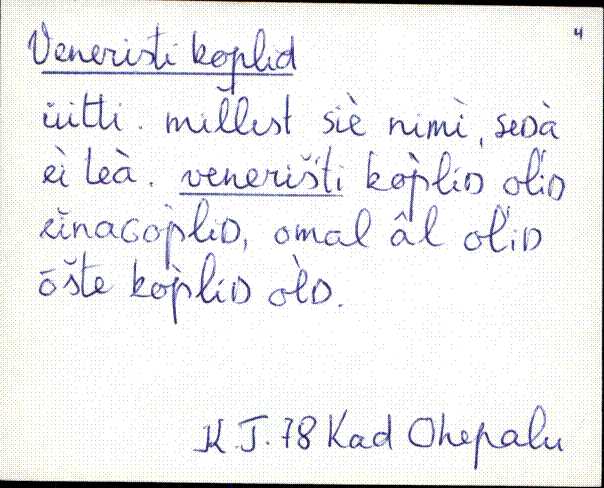 4
Veneristi koplid
üitti. millest siè nimì, sedà
eì teà. veneriš́ti kop̀liD ol'iD
eìnaGop̀liD, omal âl ol'iD
ōšte kop̀liD òlD.
K.T. 78 Kad Ohepalu